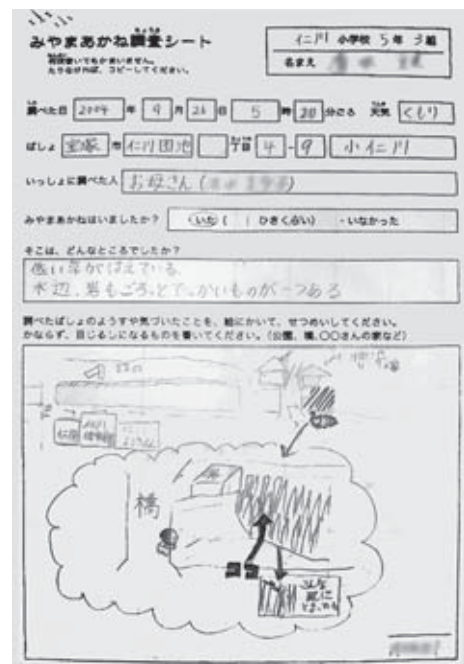 みやまあかね調査シート
何枚書いてもかまいません。
たりなければ、コピーしてください。
仁川 小学校 5年 3組
名まえ
調べた日 2004 年 9 月 26 日 5 時 20 分ごろ 天気 くもり
ばしょ 宝塚 市 仁川団地 丁目 4 - 9 小仁川
いっしょに調べた人 お母さん(
みやまあかねはいましたか? いた( 1 ひきくらい) ・いなかった
そこは、どんなところでしたか?
低い草がはえている、
水辺、岩もごろっとでっかいものが一つある
調べたばしょのようすや気づいたことを、絵にかいて、せつめいしてください。
かならず、目じるしになるものを書いてください。(公園、橋、〇〇さんの家など)
橋
こんな
風に
とまってた